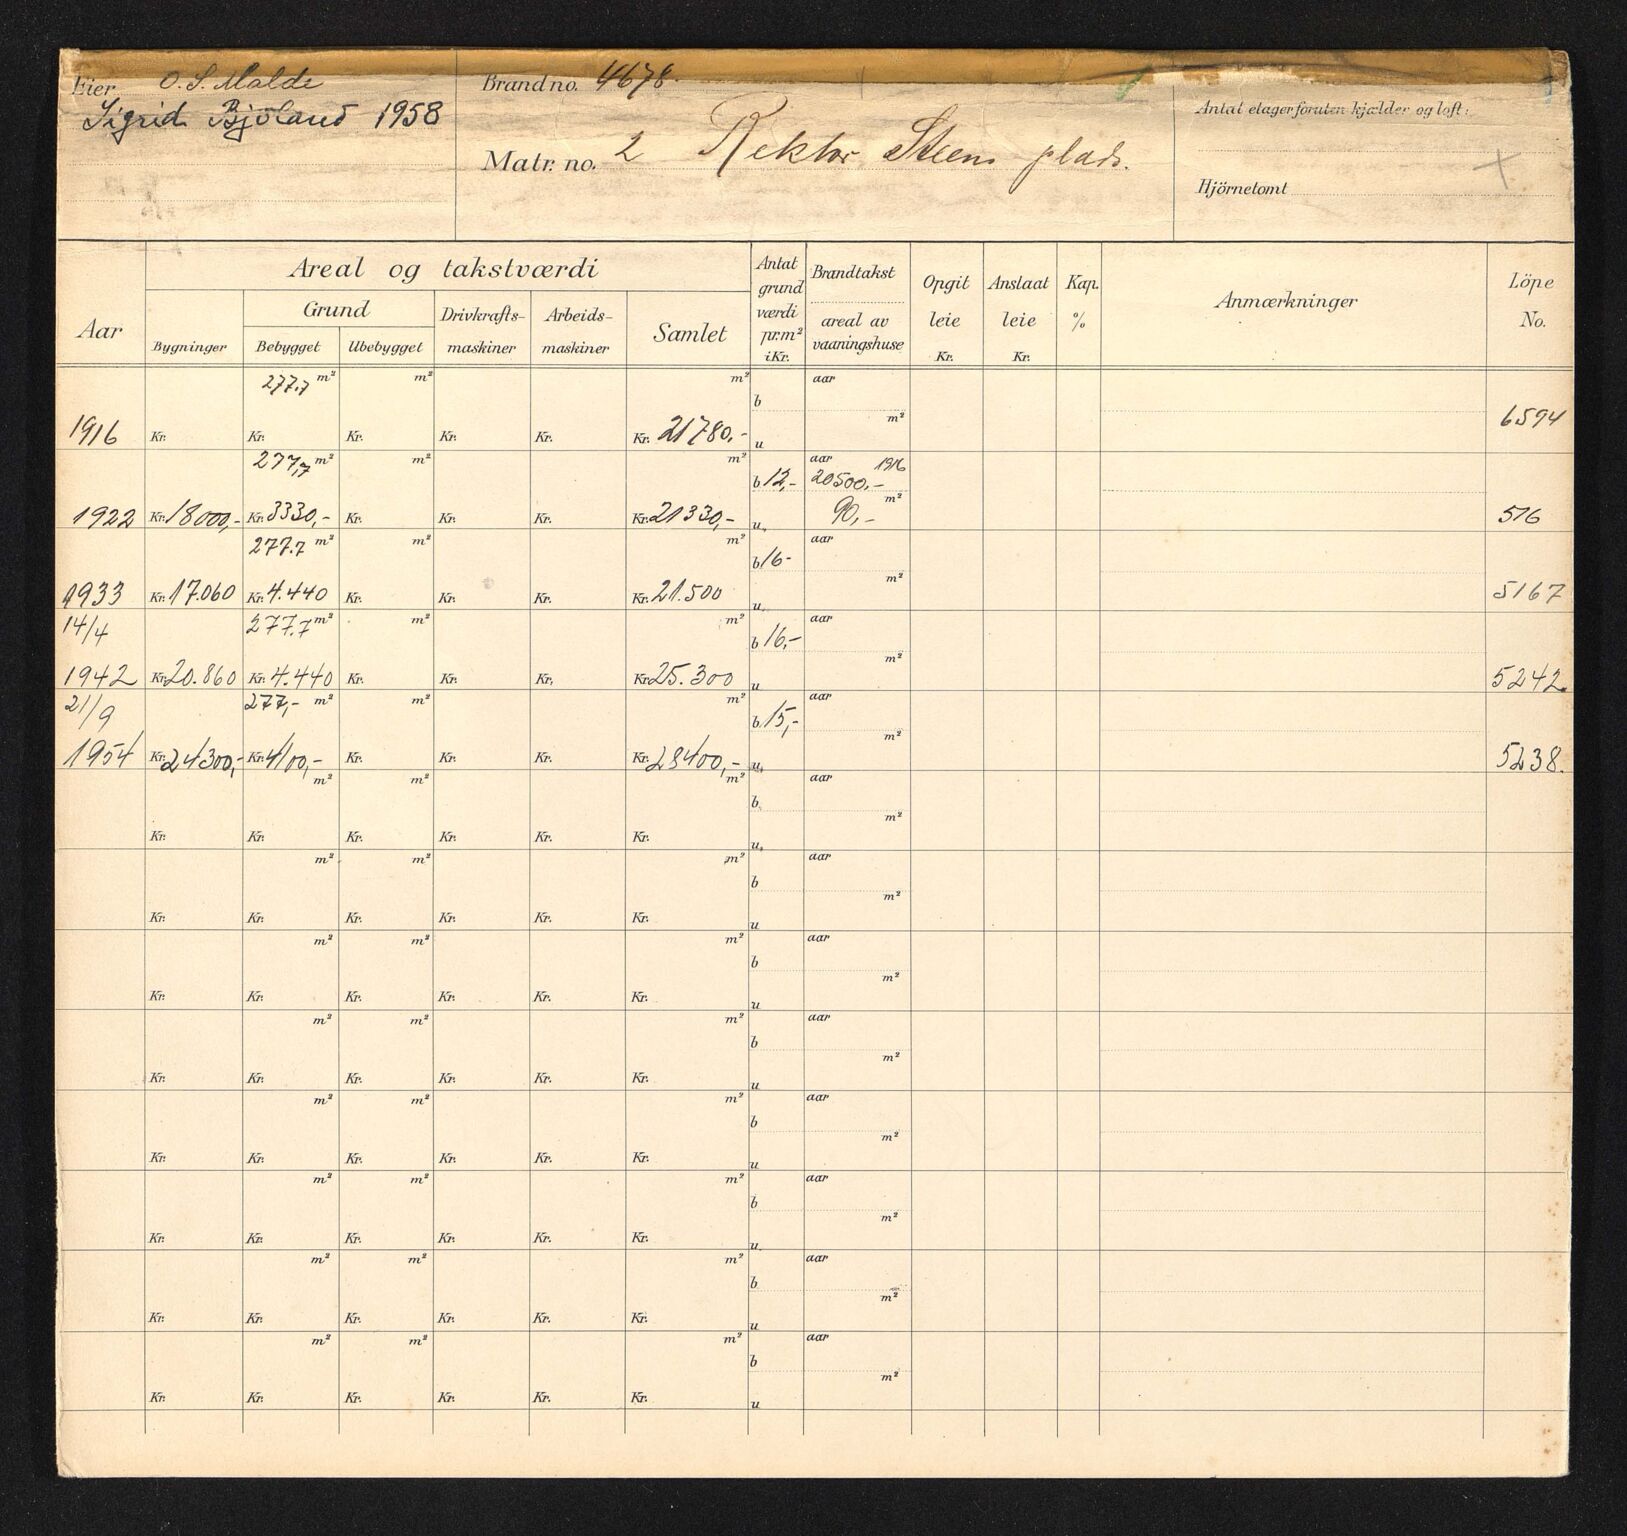 Eier O. S. Malde
Sigrid Bjöland 1958
Brand no. 4678.
Matr. no. 2 Rektor Steens plads.
Antal etager foruten kjælder og loft:
Hjörnetomt
Aar
Areal og takstværdi
Bygninger
Grund
Bebygget Ubebygget
Drivkrafts-
maskiner
Arbeids-
maskiner
Samlet
Antat
grund
værdi
pr. m²
i Kr.
Brandtakst
areal av
vaaningshuse
Opgit
leie
Kr.
Anslaat
leie
Kr.
Kap.
%
Anmærkninger
Löpe
No.
277.7 m² m² m² aar
b m²
1916 Kr. Kr. Kr. Kr. Kr. Kr. 21780,- u 6594
277,7 m² m² m² aar 1916
b 12,- 20500,- m²
1922 Kr. 18000,- Kr. 3330,- Kr. Kr. Kr. Kr. 21330,- u. 90,- 516
277.7 m² m² m² aar
b 16- m²
1933 Kr. 17.060 Kr. 4.440 Kr. Kr. Kr. Kr. 21.500 u. 5167
14/4 277.7 m² m² m² aar
b 16,- m²
1942 Kr. 20.860 Kr. 4.440 Kr. Kr. Kr. Kr. 25.300 u 5242.
21/9 277,- m² m² m² aar
b. 15,- m²
1954 Kr. 24300,- Kr. 4100,- Kr. Kr. Kr. Kr. 28400,- u. 5238.
m² m² m² aar
b. m²
Kr. Kr. Kr. Kr. Kr. Kr. u.
m² m² m² aar
b m²
Kr. Kr. Kr. Kr. Kr. Kr. u
m² m² m² aar
b m²
Kr. Kr. Kr. Kr. Kr. Kr. u
m² m² m² aar
b m²
Kr. Kr. Kr. Kr. Kr. Kr. u
m² m² m² aar
b m²
Kr. Kr. Kr. Kr. Kr. Kr. u
m² m² m² aar
b m²
Kr. Kr. Kr. Kr. Kr. Kr. u
m² m² m² aar
b m²
Kr. Kr. Kr. Kr. Kr. Kr. u
m² m² m² aar
b m²
Kr. Kr. Kr. Kr. Kr. Kr. u